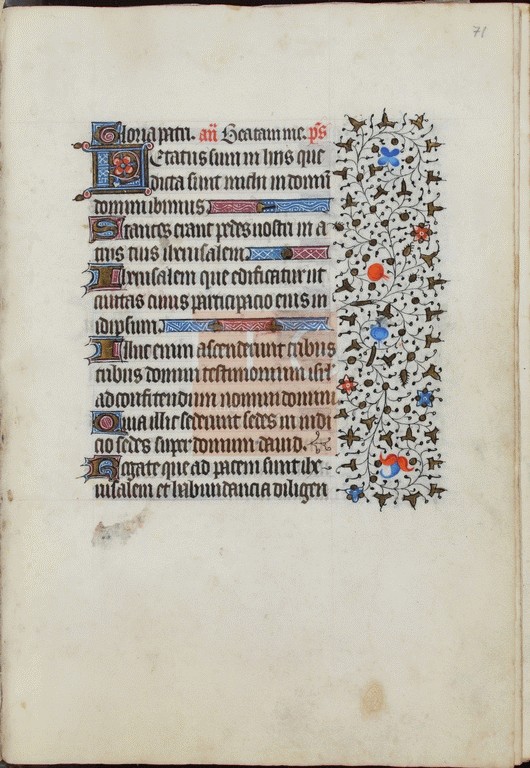 71
Gloria patri. añ Beatam me. p̄s
Letatus sum in hiis que
dicta sunt michi in domũ
domini ibimus
Stantes erant pedes nostri in a
triis tuis iherusalem
Iherusalem que edificatur ut
ciuitas cuius participacio eius in
idipsum.
Illuc enim ascenderunt tribus
tribus domini testimonium isrł
ad confitendum nomini domini
Quia illic sederunt sedes in iudi
cio sedes super domum dauid.
Rogate que ad pacem sunt ihe
rusalem et habundancia diligen